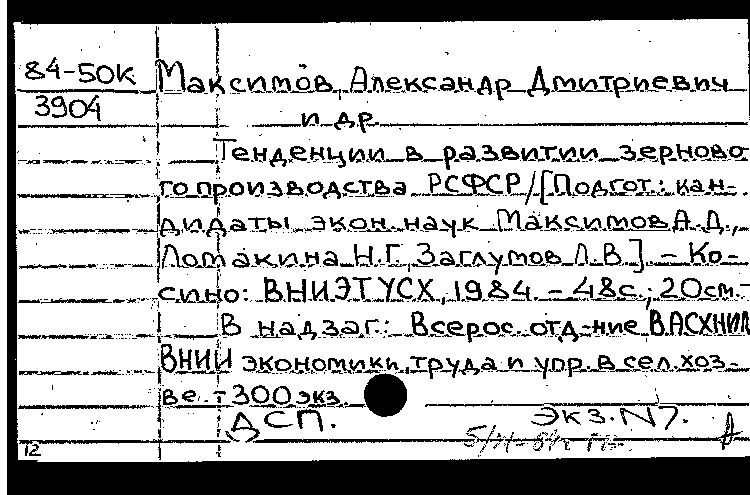 84-50К Максимов, Александр Дмитриевич
3904 и др.
Тенденции в развитии зерново
го производства РСФСР/[Подгот.: кан-
дидаты экон. наук Максимов А.Д.,
Ломакина Н.Г., Заглумов Л.В.]. - Ко-
сино: ВНИЭТУСХ, 1984. - 48с.; 20см.-
В надзаг.: Всерос. отд-ние ВАСХНИЛ
ВНИИ экономики, труда и упр. в сел. хоз-
ве. - 300 экз.
ДСП. Экз. N7.
12